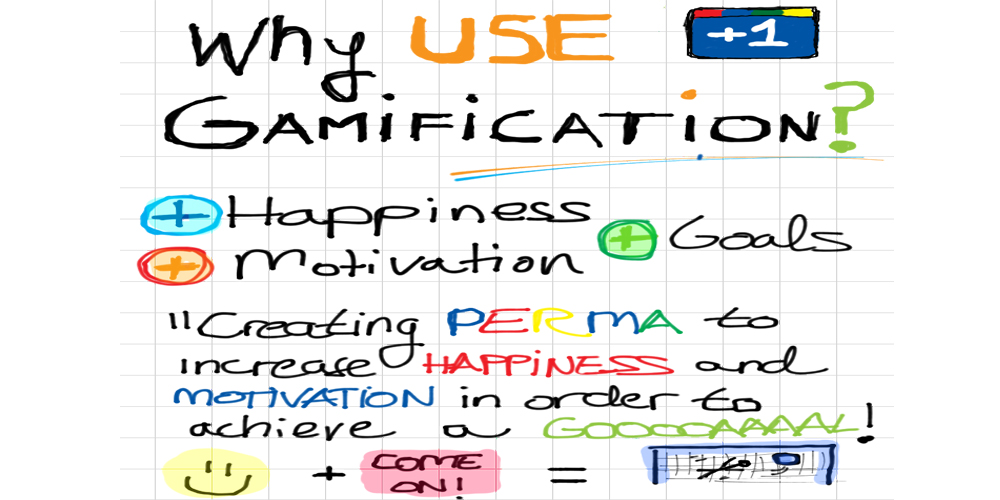 Why USE +1
GAMiFiCATiON?
+ Happiness
+ Goals
+ Motivation
"Creating PERMA to
increase HAPPiNESS and
MOTIVATION in order to
achieve a GOOOOAAAAL!
+ COME ON! =